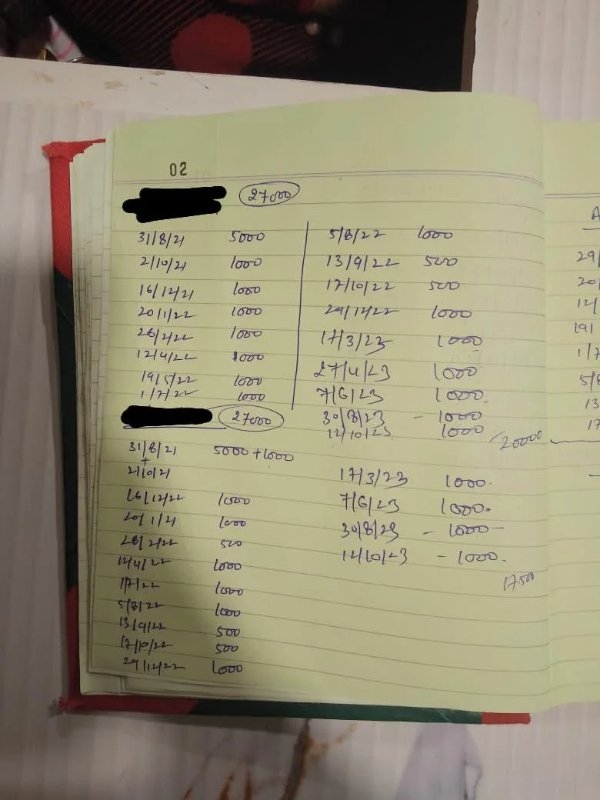 02
27000
31/8/21 5000
2/10/21 1000
16/12/21 1000
20/1/22 1000
26/2/22 1000
12/4/22 1000
19/5/22 1000
1/7/22 1000
5/8/22 1000
13/9/22 500
17/10/22 500
29/12/22 1000
17/3/23 1000
27/4/23 1000
7/6/23 1000
30/8/23 - 1000
12/10/23 1000
20000
27000
31/8/21 5000+1000
+
2/10/21
16/12/22 1000
20/1/21 1000
28/2/22 500
12/4/22 1000
1/7/22 1000
5/8/22 1000
13/9/22 500
17/10/22 500
29/12/22 1000
17/3/23 1000.
7/6/23 1000.
30/8/23 - 1000-
12/10/23 - 1000.
17500
A
29/
20/
12/
19/
1/7
5/8
13
17